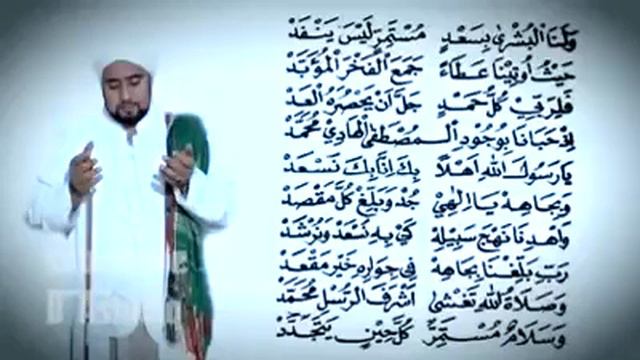 وَلَنَا الْبُشْرٰى بِسَعْدٍ مُسْتَمِرٍّ لَيْسَ يَنْفَدْ
حَيْثُ اُوتِيْنَا عَطَاءً جَمَعَ الْفَخْرَ الْمُؤَبَّدْ
فَلِرَبِّيْ كُلُّ حَمْدٍ جَلَّ اَنْ يَحْصُرَهُ الْعَدْ
اِذْ حَبَانَا بِوُجُودِ الْمُصْطَفَى الْهَادِيْ مُحَمَّدْ
يَا رَسُولَ اللهِ اَهْلًا بِكَ اِنَّا بِكَ نَسْعَدْ
وَبِجَاهِهْ يَا اِلٰهِيْ جُدْ وَبَلِّغْ كُلَّ مَقْصَدْ
وَاهْدِنَا نَهْجَ سَبِيْلِهْ كَيْ بِهِ نَسْعَدْ وَنُرْشَدْ
رَبِّ بَلِّغْنَا بِجَاهِهْ فِيْ جِوَارِهْ خَيْرَ مَقْعَدْ
وَصَلَاةُ اللهِ تَغْشَى اَشْرَفَ الرُّسْلِ مُحَمَّدْ
وَسَلَامٌ مُسْتَمِرٌّ كُلَّ حِيْنٍ يَتَجَدَّدْ